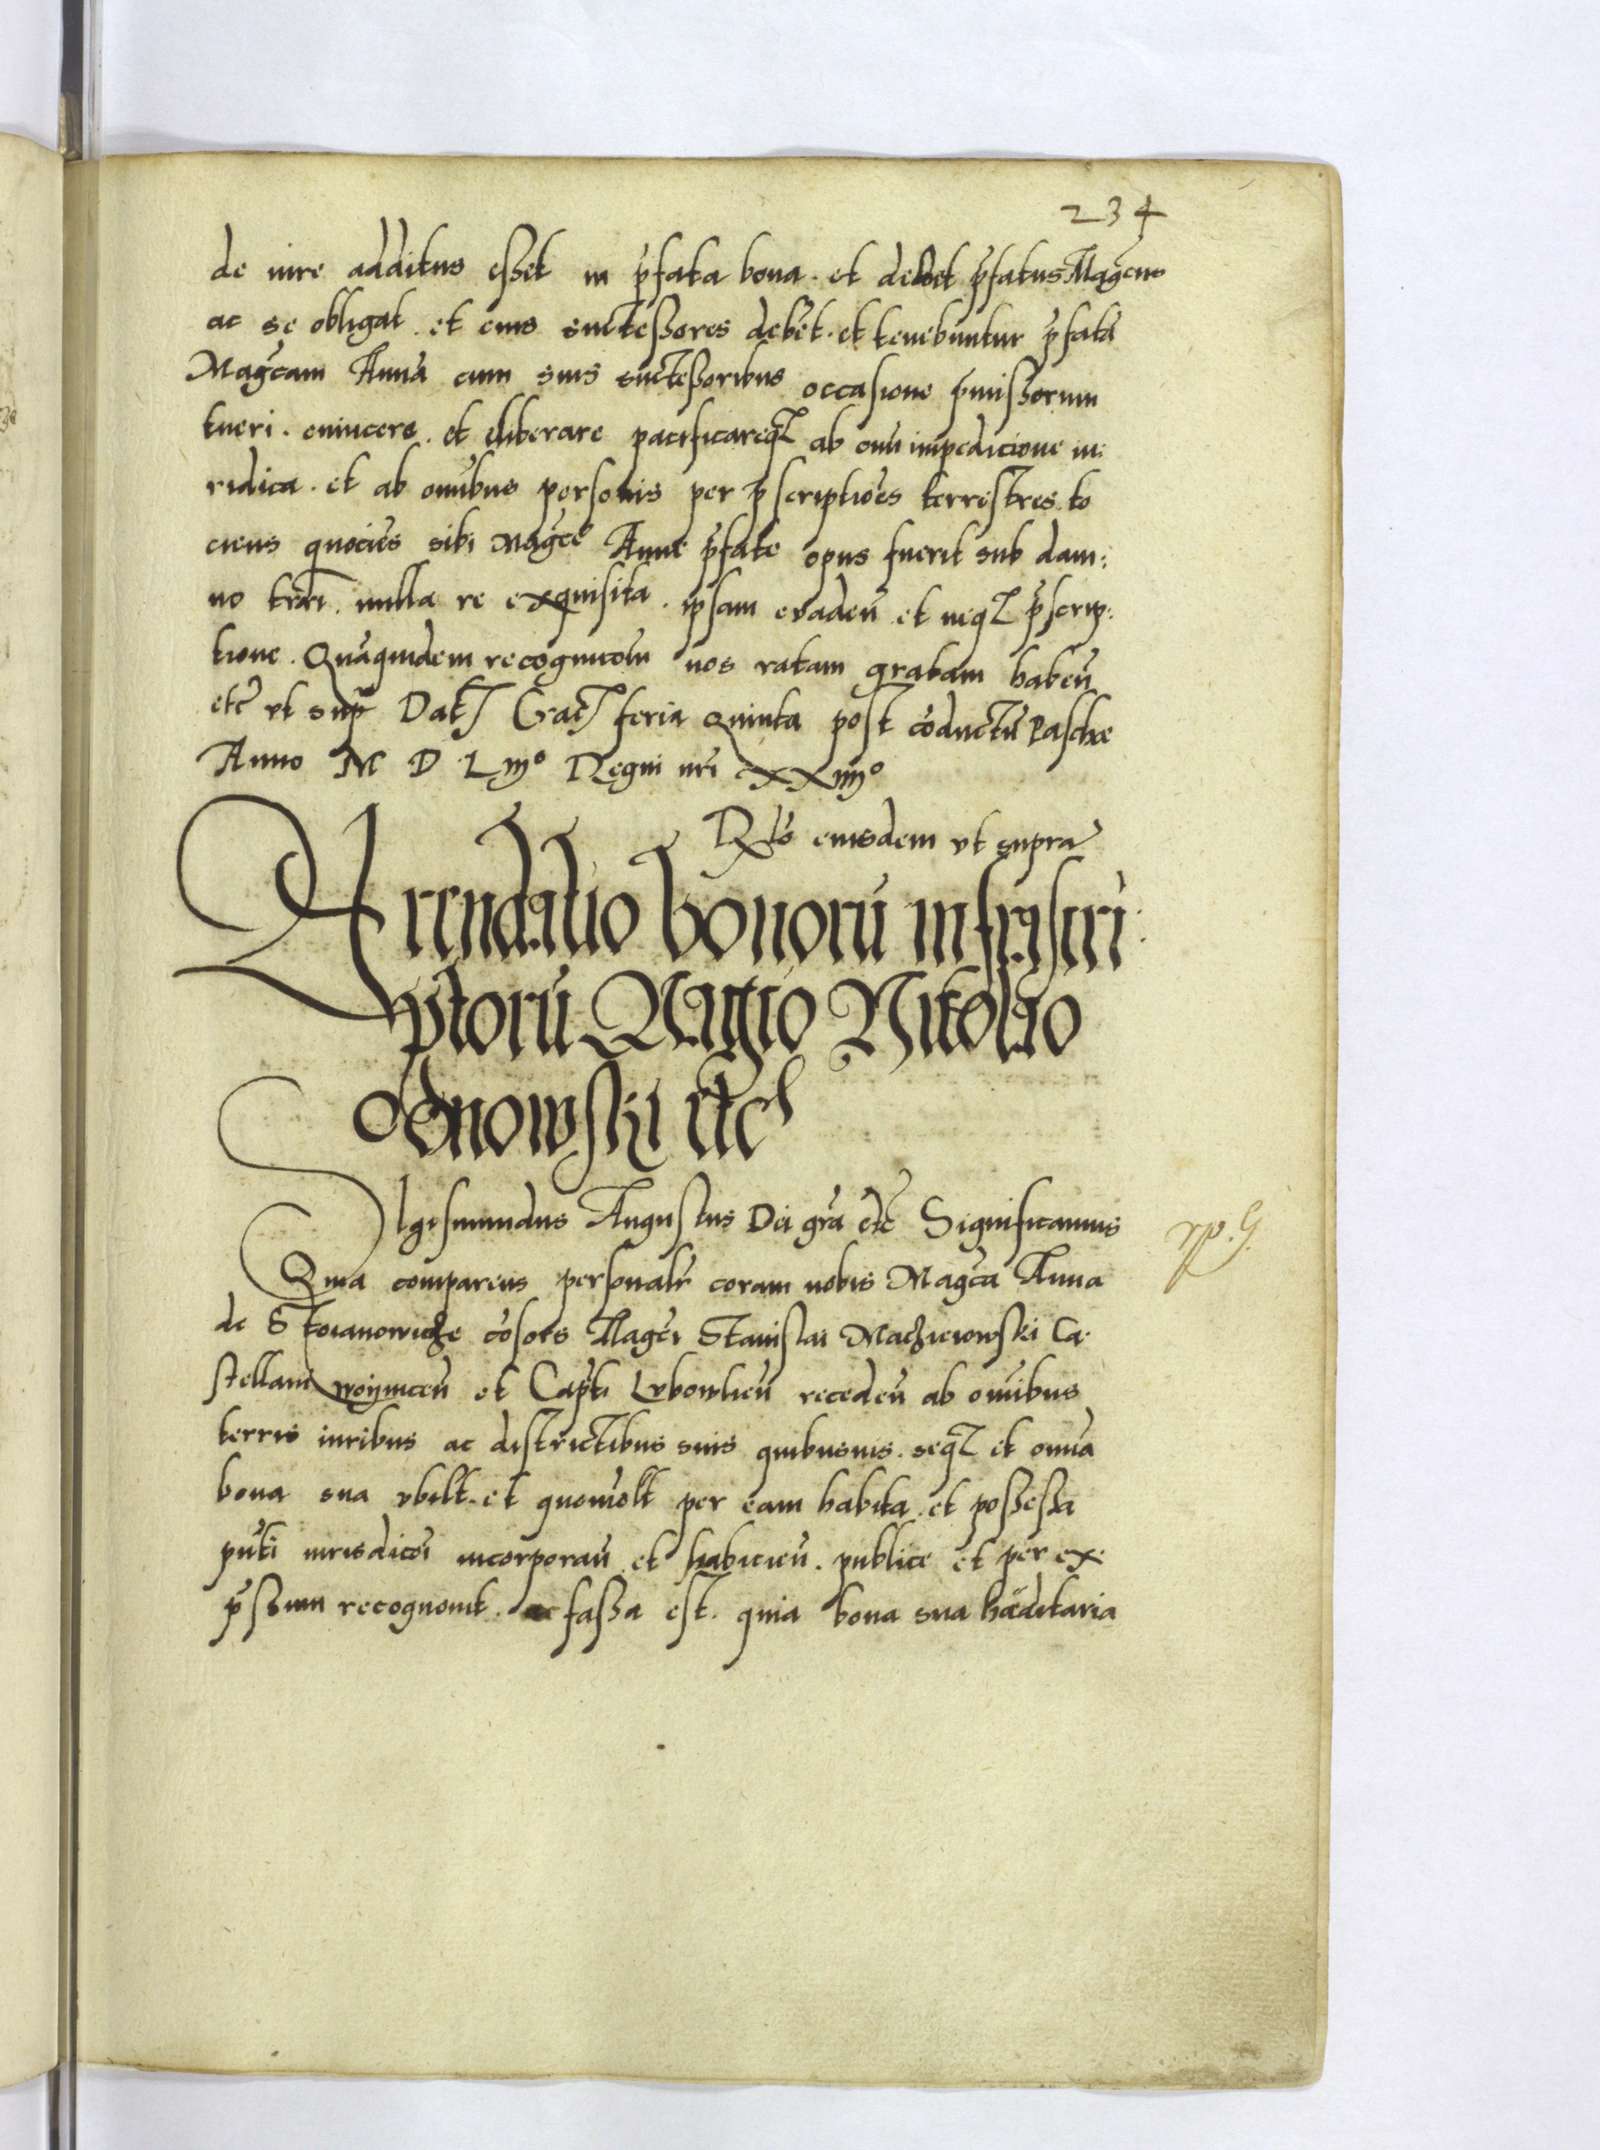 234
de iure additus esset in p̄fata bona. et debet p̄fatus Mag̃cus
ac se obligat et eius successores debēt. et tenebuntur p̄fatā
Mag̃cam Annā cum suis successoribus occasione p̄missorum
tueri. evincere. et eliberare pacificareq̃ ab omi impedicione iu:
ridica. et ab omībus personis per p̄scriptiões terrestres to
ciens quociēs sibi Mag̃ce Anne p̄fate opus fuerit sub dam:
no trãri. nulla re exquisita. ipsam evadeñ et neq̃ p̄scrip:
tione. Quāquidem recognicõm nos ratam gratam habeñ
etc̃ vt sup̃ Dat̃ Crac̃ feria Quinta post cōductū Pasche
Anno M D L iijº Regni nr̃i XXiiijº
Rl̃o eiusdem vt supra
Arendatio bonorū infrascri:
ptorū Mag̃co Nicolao
Obnowski etc
SIgismundus Augustus Dei gr̃a etc̃ Significamus
Quia comparens personalr̃ coram nobis Mag̃ca Anna
de Stoianowicze cōsors Mag̃ci Stanislai Maczieiowski Ca:
stellani woijniceñ et Capt̃i Lvbowlieñ recedeñ ab omībus
terris iuribus ac districtibus suis quibusuis. seq̃ et omīa
bona sua vbilt. et quomõlt per eam habita. et possessa
pñti iurisdicõi incorporañ et habicieñ. publice et per ex:
p̄ssum recognouit. ac fassa est. quia bona sua hæditaria